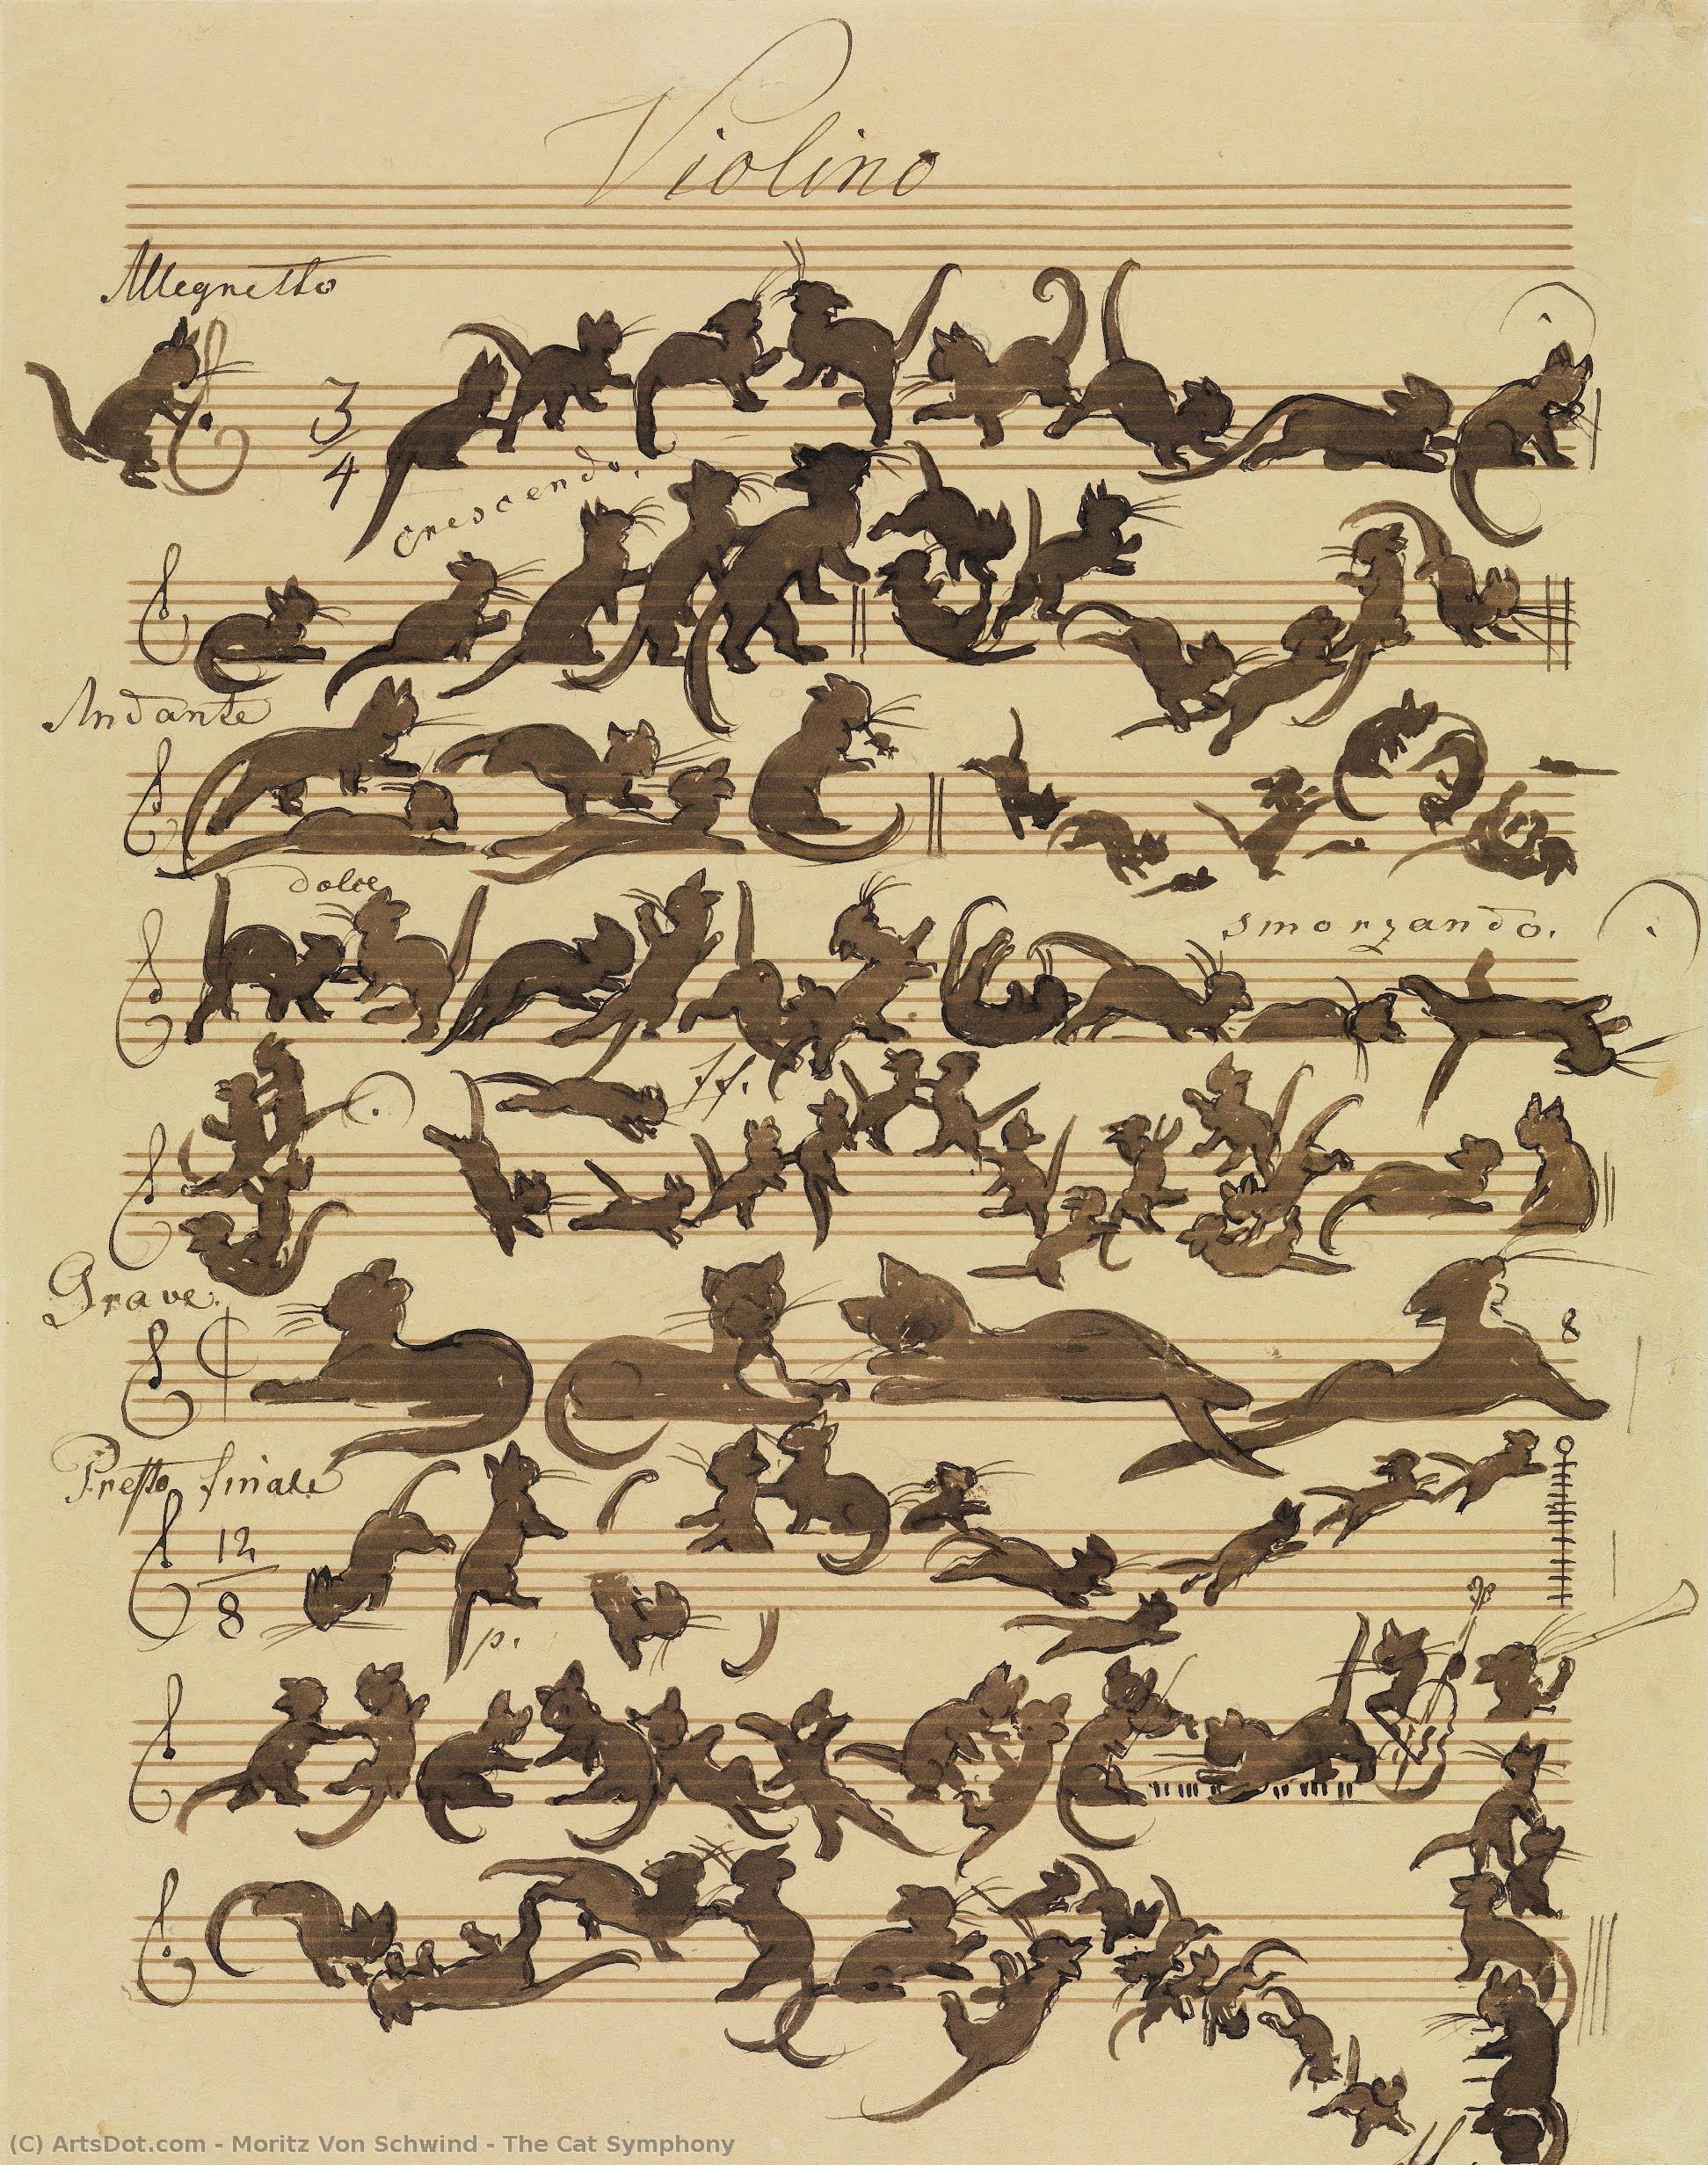 Violino
Allegretto
3
4
crescendo.
Andante
dolce
smorzando.
ff.
Grave.
8
Presto finale
12
8
p.
(C) ArtsDot.com - Moritz Von Schwind - The Cat Symphony